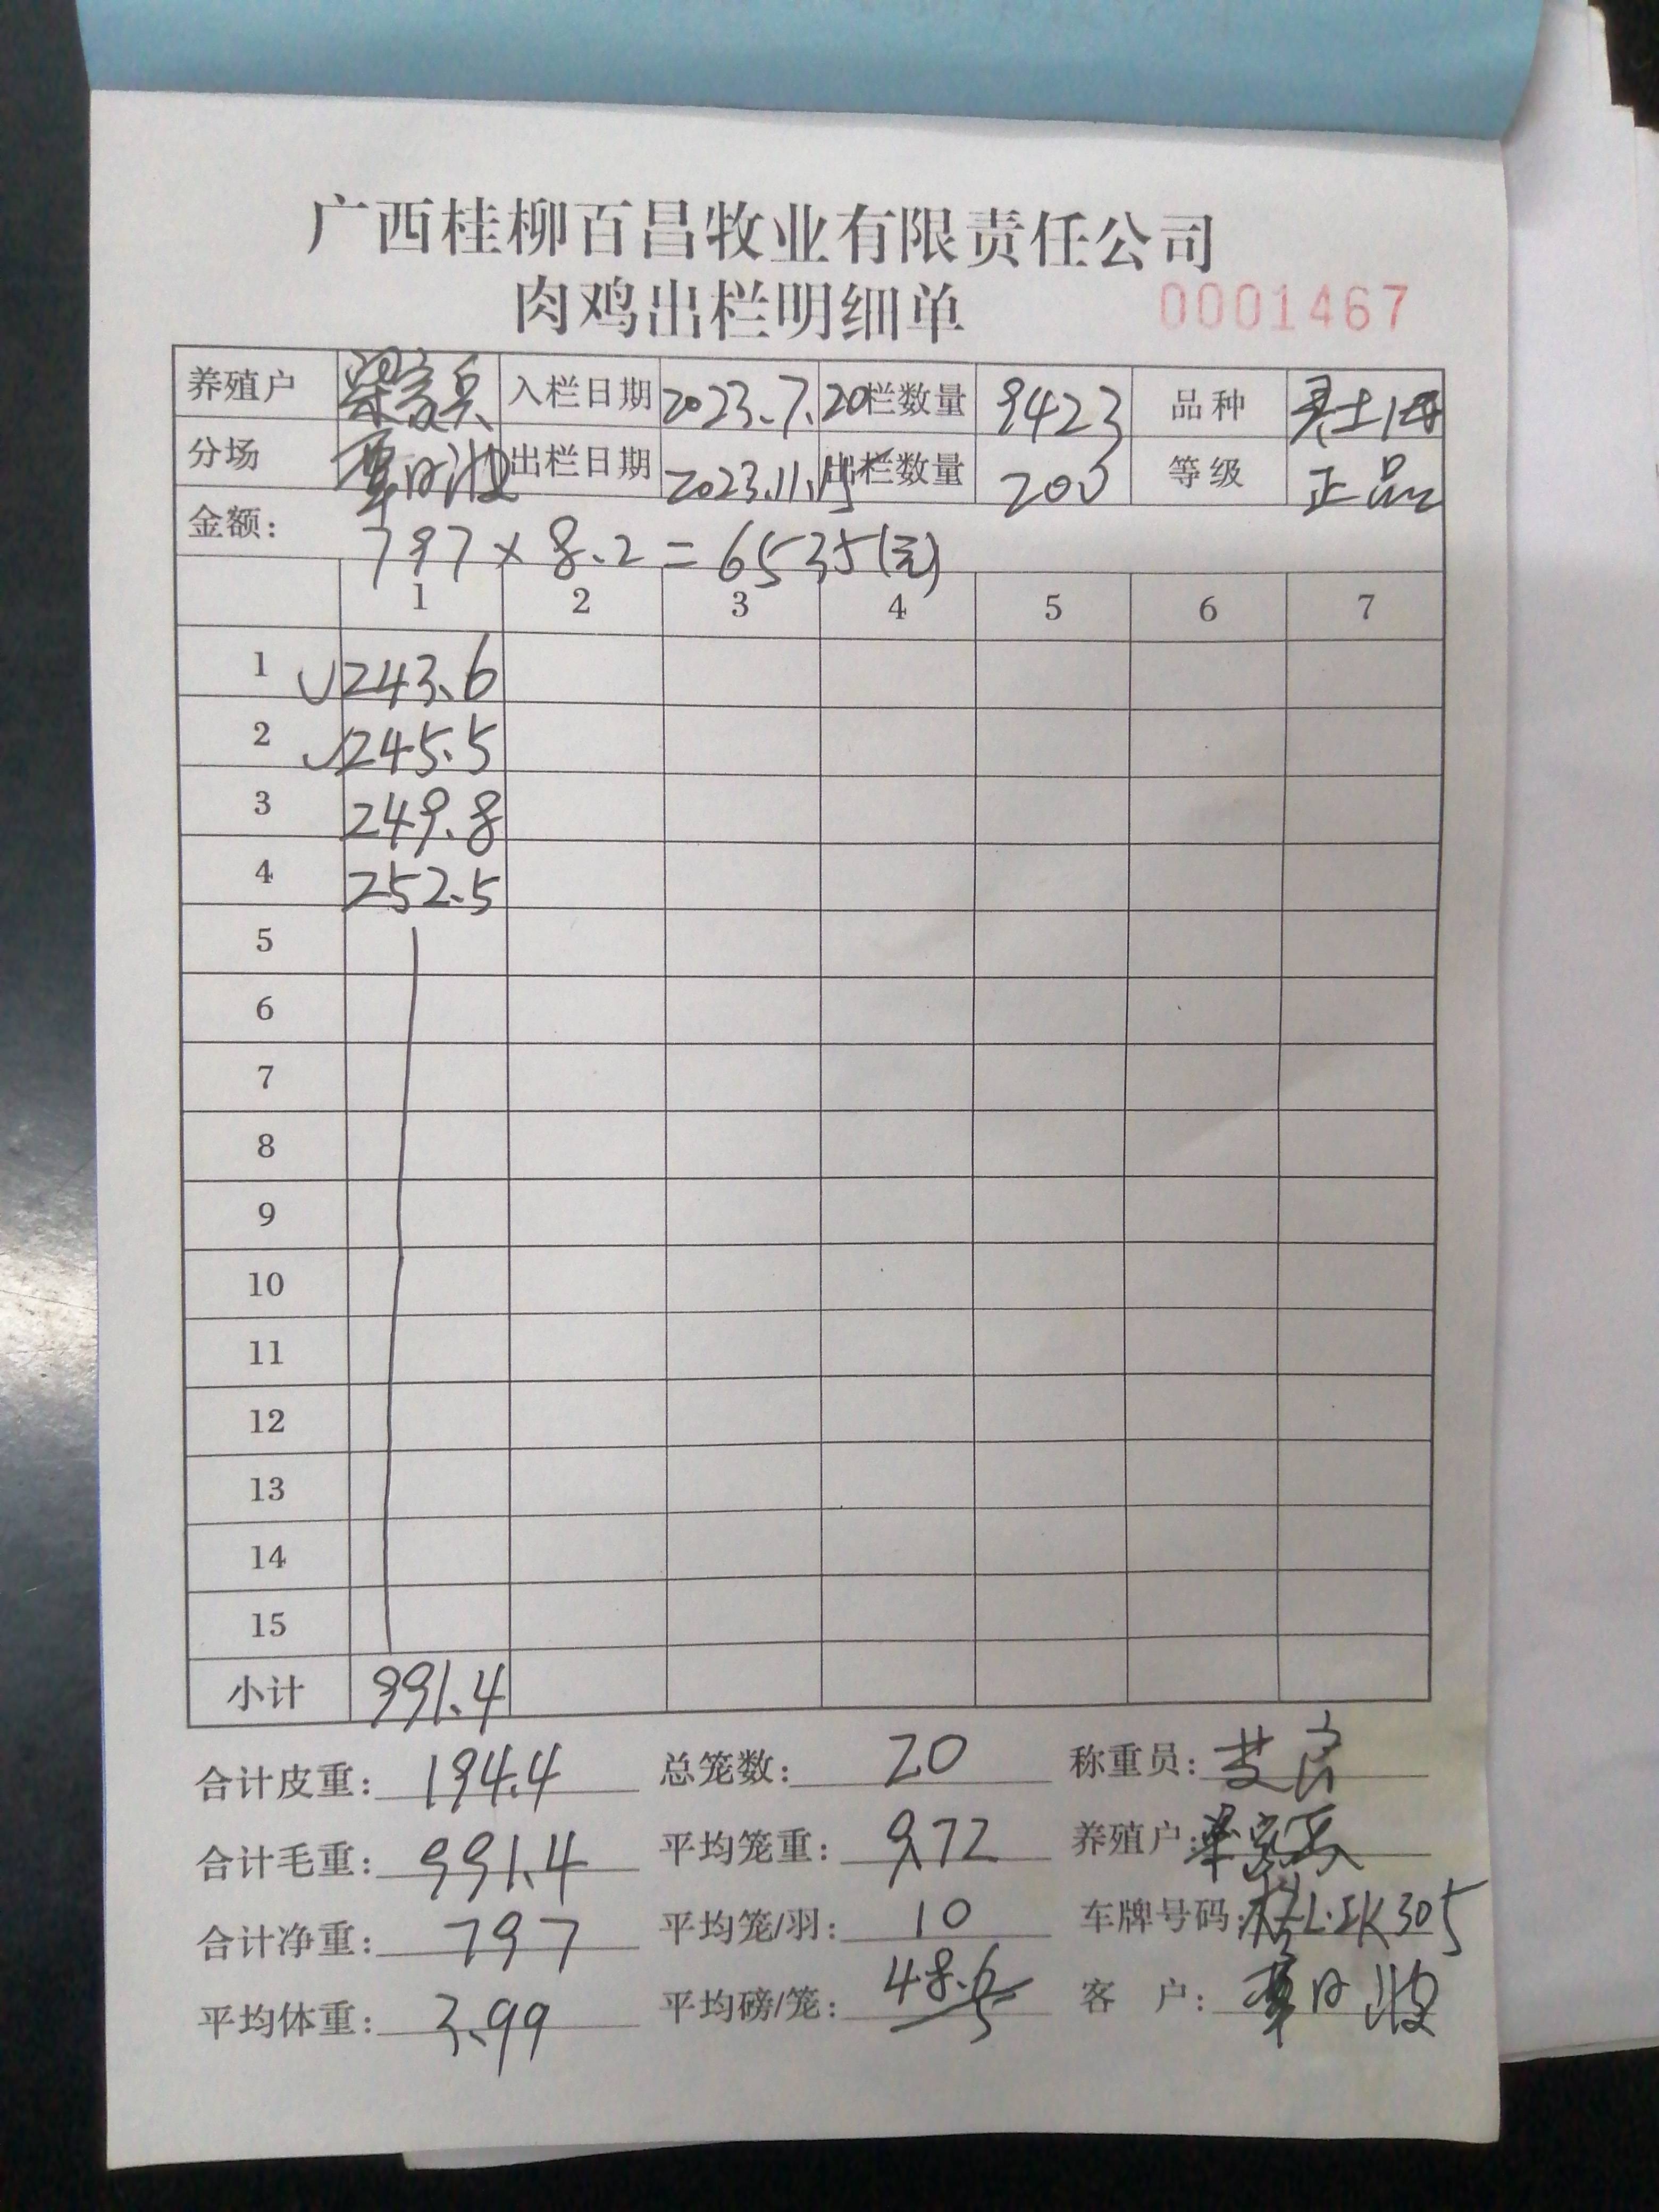 广西桂柳百昌牧业有限责任公司
肉鸡出栏明细单 0001467
养殖户 入栏日期 2023.7.20 栏数量 9423 品种
分场 覃日波 出栏日期 2023.11.15 出栏数量 200 等级 正品
金额: 797 × 8.2 = 6535(元)
1 2 3 4 5 6 7
1 √243.6
2 √245.5
3 249.8
4 252.5
5
6
7
8
9
10
11
12
13
14
15
小计 991.4
合计皮重: 194.4 总笼数: 20 称重员:
合计毛重: 991.4 平均笼重: 9.72 养殖户:
合计净重: 797 平均笼/羽: 10 车牌号码:
平均体重: 3.99 平均磅/笼: 48.6 5 客 户: 覃日波